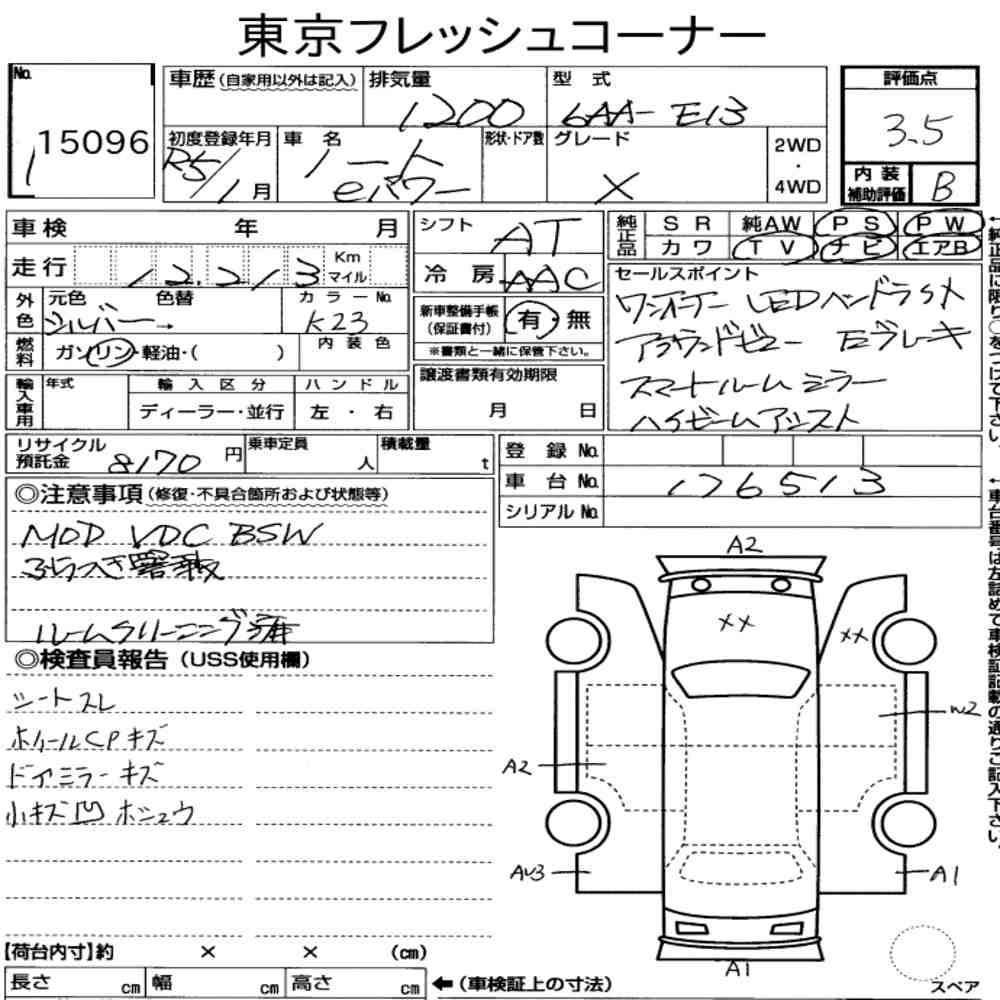 東京フレッシュコーナー
No.
15096
1
車歴(自家用以外は記入)
排気量
1200
型式
6AA-E13
評価点
3.5
初度登録年月
R5/1月
車名
ノート
eパワー
形状・ドア数
グレード
X
2WD
・
4WD
内装
補助評価
B
車検 年 月
シフト
AT
純正品
SR 純AW PS PW
カワ TV ナビ エアB
走行
12,213
Km
マイル
冷房
AAC
セールスポイント
ワンオーナー LEDヘッドライト
アラウンドビュー Eブレーキ
スマートルームミラー
ハイビームアシスト
外色
元色 色替
シルバー→
カラーNo.
K23
新車整備手帳
(保証書付)
有・無
※書類と一緒に保管下さい。
燃料
ガソリン・軽油・( )
内装色
譲渡書類有効期限
月 日
輸入車用
年式
輸入区分
ハンドル
ディーラー・並行
左・右
リサイクル
預託金
8170円
乗車定員
人
積載量
t
登録No.
車台No.
176513
シリアルNo.
◎注意事項(修復・不具合箇所および状態等)
MOD VDC BSW
ルームクリーニング済
◎検査員報告(USS使用欄)
シートスレ
ホイールCPキズ
ドアミラーキズ
小キズ凹 ボシュウ
A2
XX
XX
W2
A2
AU3
A1
A1
スペア
【荷台内寸】約 × × (cm)
長さ cm
幅 cm
高さ cm
←(車検証上の寸法)
←純正品に限り○をつけて下さい。
←車台番号は左詰めて車検証記載の通りご記入下さい。